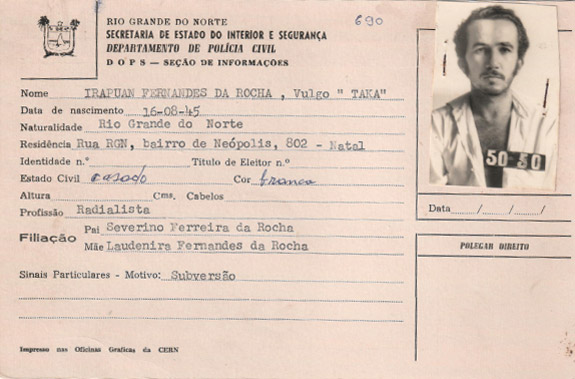 RIO GRANDE DO NORTE
690
SECRETARIA DE ESTADO DO INTERIOR E SEGURANÇA
DEPARTAMENTO DE POLÍCIA CIVIL
D O P S — SEÇÃO DE INFORMAÇÕES
Nome IRAPUAN FERNANDES DA ROCHA , Vulgo " TAKA"
Data de nascimento 16-08-45
Naturalidade Rio Grande do Norte
Residência Rua RGN, bairro de Neópolis, 802 - Natal
Identidade n.º Titulo de Eleitor n.º
Estado Civil casado Cor branca
Altura Cms. Cabelos
Profissão Radialista
Filiação
Pai Severino Ferreira da Rocha
Mãe Laudenira Fernandes da Rocha
Sinais Particulares - Motivo: Subversão
Impresso nas Oficinas Graficas da CERN
50 50
Data / / /
POLEGAR DIREITO